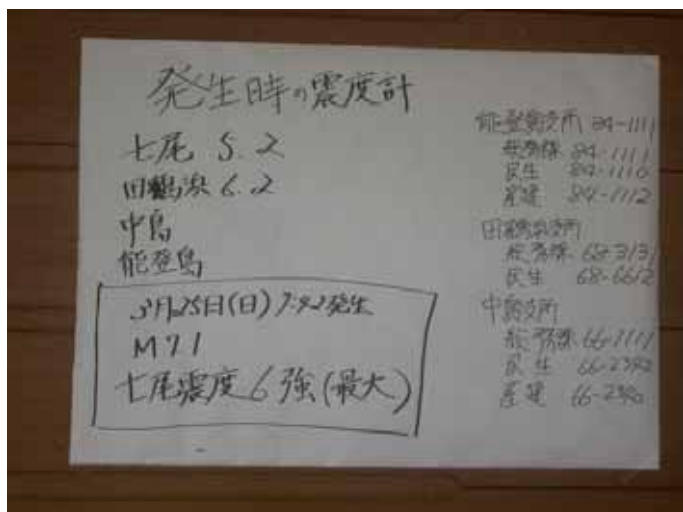 発生時の震度計
七尾 5.2
田鶴浜 6.2
中島
能登島
3月25日(日) 9:42発生
M7.1
七尾震度6強(最大)
能登島支所 84-1111
総務課 84-1111
民生 84-1110
産建 84-1112
田鶴浜支所
総務課 68-3131
民生 68-6612
中島支所
総務課 66-1111
民生
産建